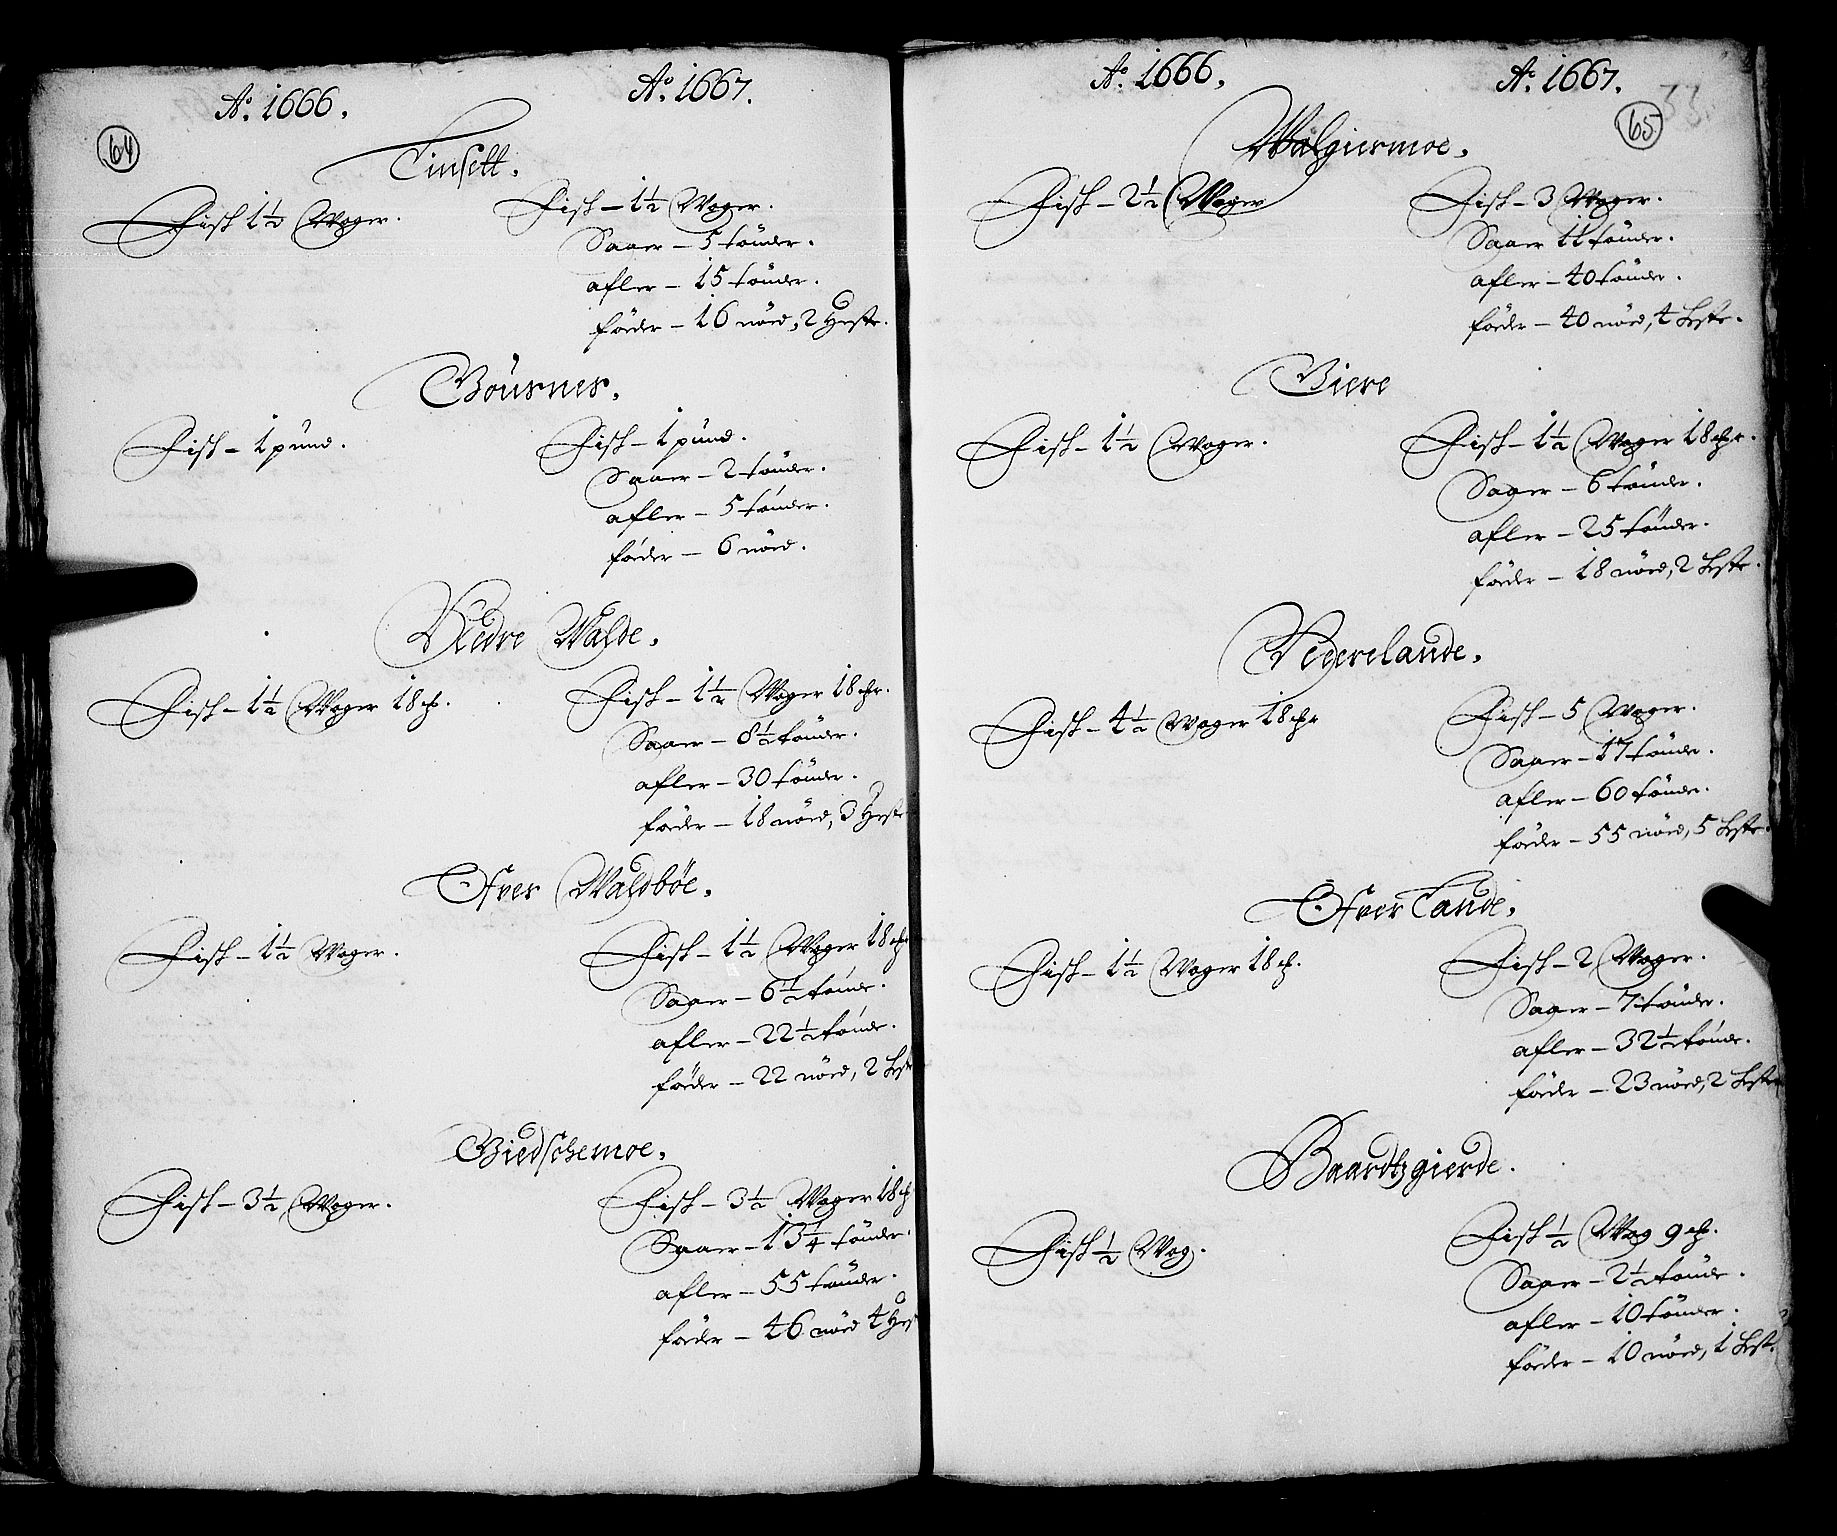 64
Ao. 1666.
Ao. 1667.
Tinsett.
Fisk 1½ Woger.
Fisk – 1½ Woger.
Saaer – 5 tönder.
afler – 15 tönder.
föder – 16 nöed, 2 Heste.
Bousnes.
Fisk – 1 pund.
Fisk – 1 pund.
Saaer – 2 tönder.
afler – 5 tönder.
föder – 6 nöed.
Nedre Walde.
Fisk – 1½ Woger 18 ℔.
Fisk – 1½ Woger 18 ℔r.
Saaer – 8½ tönder.
afler – 30 tönder.
föder – 18 nöed, 3 Heste
Ofver Waldbøe.
Fisk – 1½ Woger.
Fisk – 1½ Woger 18 ℔r
Saaer – 6½ tönde.
afler – 22½ tönde.
föder – 22 nöed, 2 Heste
Biedschemoe.
Fisk – 3½ Woger.
Fisk – 3½ Woger 18 ℔
Saaer – 13¼ tönder.
afler – 55 tönder.
föder – 46 nöed 4 Hes
65
33.
Ao. 1666.
Ao. 1667.
Walgiermoe.
Fisk – 2½ Woger
Fisk – 3 Woger.
Saaer 11 tönder.
afler – 40 tönder.
föder – 40 nöed, 4 Heste.
Biere
Fisk – 1½ Woger.
Fisk – 1½ Woger 18 ℔r.
Saaer – 6 tönder.
afler – 25 tönder.
föder – 18 nöed, 2 Heste.
Nederelande.
Fisk – 4½ Woger 18 ℔r
Fisk – 5 Woger.
Saaer – 17 tönder.
afler – 60 tönder.
föder – 55 nöed, 5 Heste.
Ofver Lande.
Fisk – 1½ Woger 18 ℔.
Fisk – 2 Woger.
Saaer – 7 tönder.
afler – 32½ tönde.
föder – 23 nöed, 2 Heste
Baardtzgierde.
Fisk ½ Wog.
Fisk ½ Wog 9 ℔.
Saaer – 2½ tönde.
afler – 10 tönder.
föder – 10 nöed, 1 Hest.